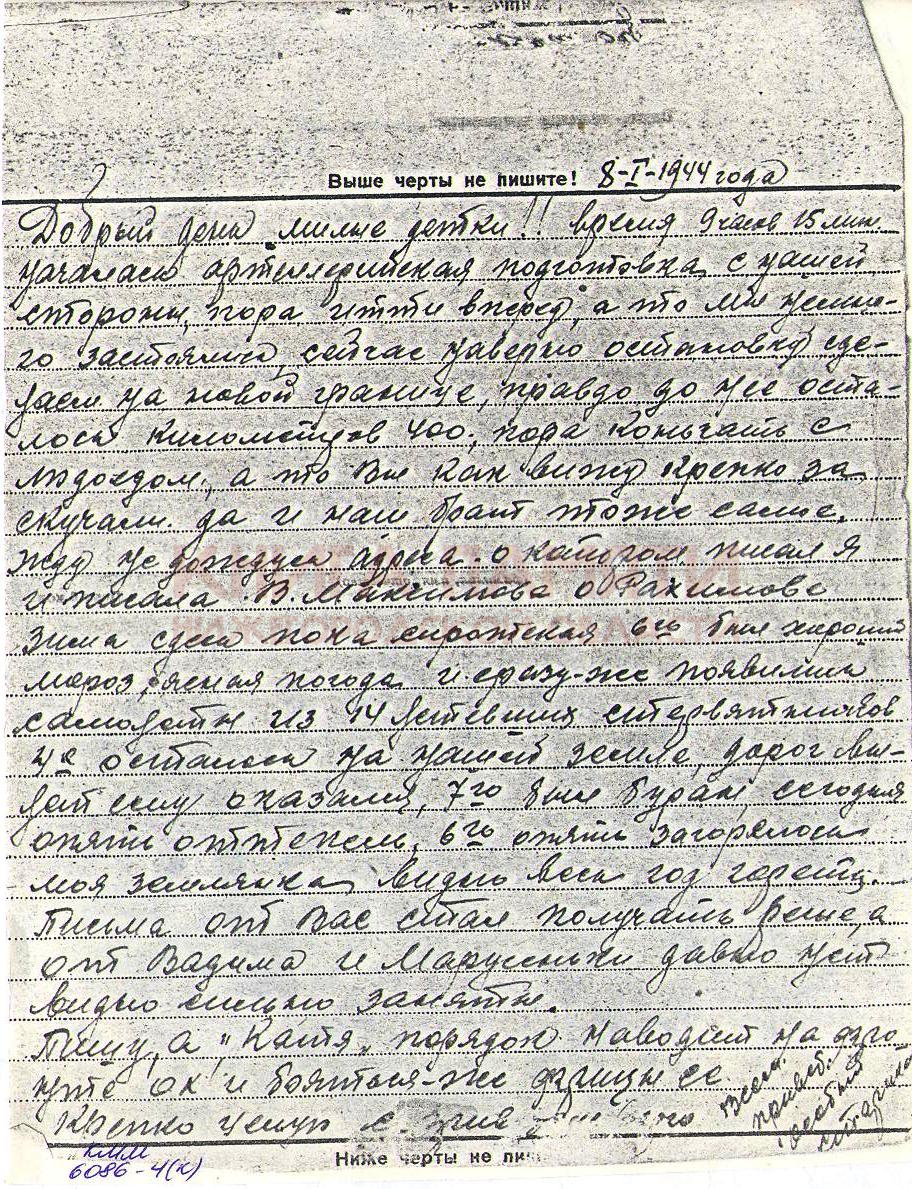 Выше черты не пишите! 8-I-1944 года
Добрый день милые детки!! время 9 часов 15 мин.
началась артеллерийская подготовка с нашей
стороны, пора итти вперед, а то мы немно-
го застоялись, сейчас наверно остановку сде-
лаем на новой границе, правдо до нее оста-
лось километров 400, пора кончать с
людоедом, а то Вы как вижу крепко за
скучали да и наш брат тоже самое.
жду не дождусь адреса о котором писал я
и писала В. Максимова о Рахимове
Зима здесь пока сиротская 6го был хороший
мороз, ясная погода и сразу-же появились
самолеты из 14 летевших стервятников
4е осталось на нашей земле, дорог вы-
лет ему оказался, 7го был буран, сегодня
опять оттепель, 6го опять загорелась
моя землянка, видно весь год гореть.
Письма от Вас стал получать, а
от Вадима и Маруси давно нет
видно сильно заняты.
Пишу, а "Катя" порядок наводит на
ух и боятся-же фрицы ее
Крепко целую
Всем
привет
особый
Ниже черты не пи
КММ
6086-4(к)